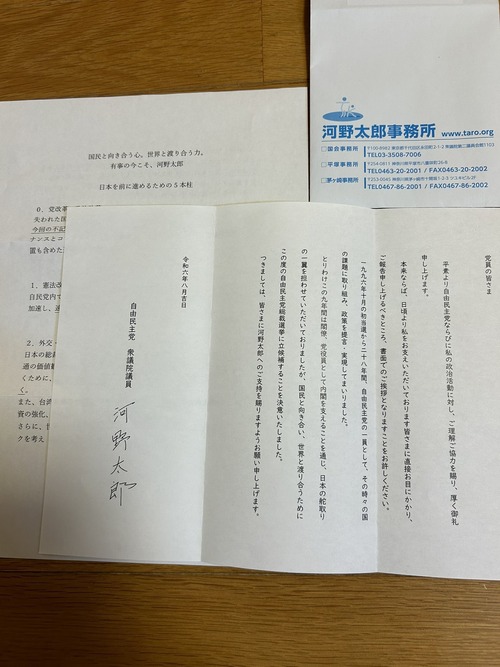 河野太郎事務所 www.taro.org
□国会事務所
〒100-8982 東京都千代田区永田町2-1-2 衆議院第二議員会館1103
TEL03-3508-7006
□平塚事務所
〒254-0811 神奈川県平塚市八重咲町26-8
TEL0463-20-2001 / FAX0463-20-2002
□茅ヶ崎事務所
TEL0467-86-2001 / FAX0467-86-2002
国民と向き合う心。世界と渡り合う力。
有事の今こそ、河野太郎
日本を前に進めるための5本柱
0．党改革
失われた国
今回の不記
ナンスとコ
置も含めた
1．憲法改
自民党内で
加速し、
2．外交
日本の総
通の価値
くために、
く。
また、台湾
資の強化、
さらに、世
クを考え
党員の皆さま
平素より自由民主党ならびに私の政治活動に対し、ご理解ご協力を賜り、厚く御礼
申し上げます。
本来ならば、日頃より私をお支えいただいております皆さまに直接お目にかかり、
ご報告申し上げるべきところ、書面でのご挨拶となりますことをお許しください。
一九九六年十月の初当選から二十八年間、自由民主党の一員として、その時々の国
の課題に取り組み、政策を提言・実現してまいりました。
とりわけこの九年間は閣僚、党役員として内閣を支えることを通じ、日本の舵取り
の一翼を担わせていただいておりましたが、国民と向き合い、世界と渡り合うために
この度の自由民主党総裁選挙に立候補することを決意いたしました。
つきましては、皆さまに河野太郎へのご支持を賜りますようお願い申し上げます。
令和六年八月吉日
自由民主党 衆議院議員 河野太郎